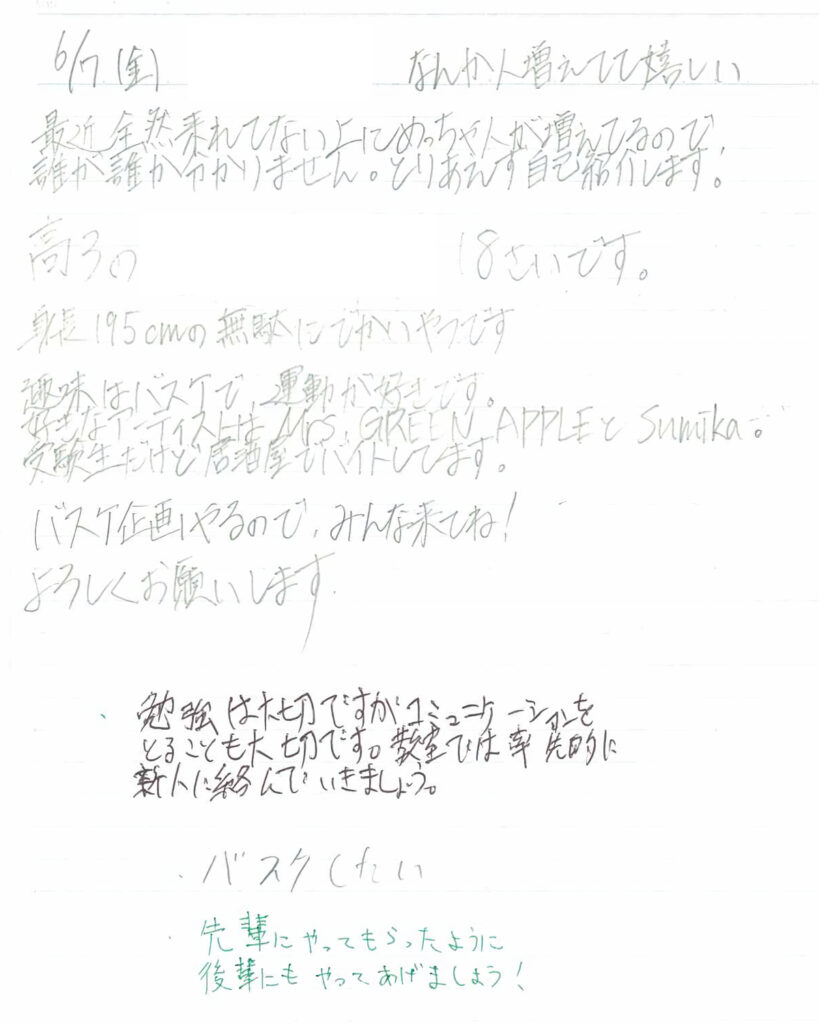 6/7(金) なんか人増えてて嬉しい
最近全然来れてない上にめっちゃ人が増えてるので、
誰が誰か分かりません。とりあえず自己紹介します!
高3の 18さいです。
身長195cmの無駄にでかいやつです
趣味はバスケで、運動が好きです。
好きなアーティストは Mrs. GREEN APPLEと Sumika。
受験生だけど居酒屋でバイトしてます。
バスケ企画やるので、みんな来てね!
よろしくお願いします
勉強は大切ですがコミュニケーションを
とることも大切です。教室では率先的に
新人に絡んでいきましょう。
バスケしたい
先輩にやってもらったように
後輩にもやってあげましょう!